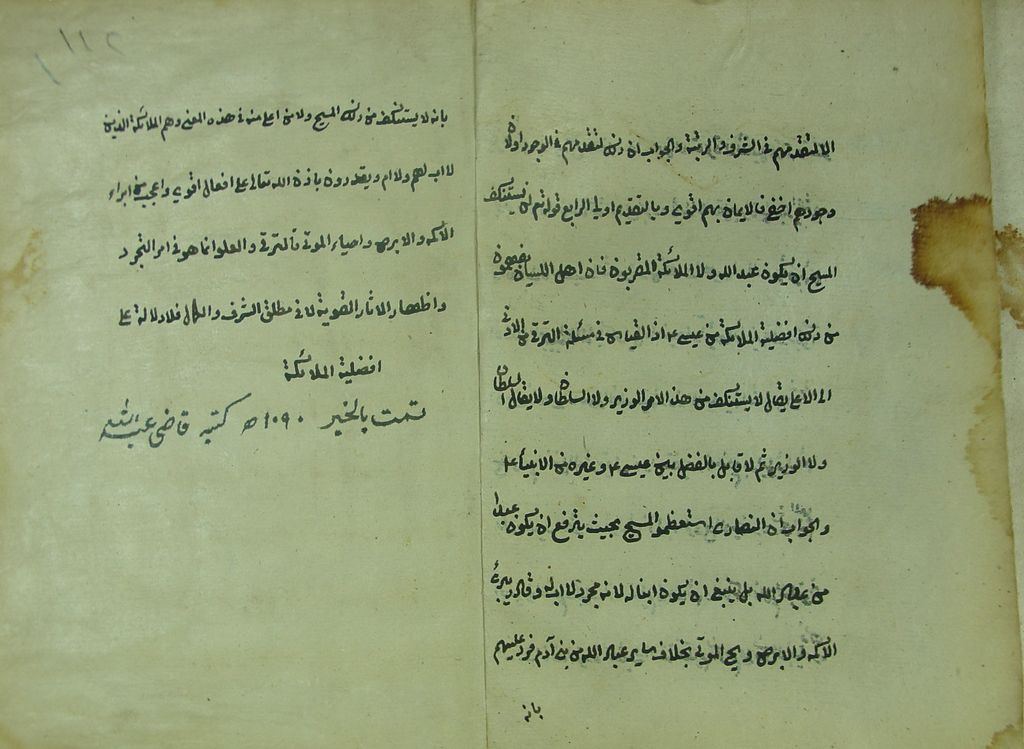 الا لتقدمهم في الشرف والرتبة والجواب ان ذلك لتقدمهم في الوجود اولان
وجودهم اخفى فالايمان بهم اقوى وبالتقديم اولى الرابع قوله تع لن يستنكف
المسيح ان يكون عبد الله ولا الملائكة المقربون فان اهل اللسان يفهمون
من ذلك افضلية الملائكة من عيسى ع م اذ القياس في مثله الترقي من الادنى
الى الاعلى يقال لا يستنكف من هذا الامر الوزير ولا السلطان ولا يقال السلطان
ولا الوزير ثم لا قايل بالفضل بين عيسى ع م وغيره من الانبياء ع م
والجواب ان النصارى استعظموا المسيح بحيث يترفع ان يكون عبدا
من عباد الله بل ينبغي ان يكون ابنا له لانه مجرد لا اب له وقال يبرئ
الاكمه والابرص ويحي الموتى بخلاف ساير عباد الله من بني آدم فرد عليهم
بانه
١١٢
بانه لا يستنكف من ذلك المسيح ولا من اعلى منه في هذه المعنى وهم الملائكة الذين
لا اب لهم ولا ام ويقدرون باذن الله تعالى على افعال اقوى واعجب من ابراء
الاكمه والابرص واحياء الموتى فالترقي والعلو انما هو في امر التجرد
واظهار الاثار القوية لا في مطلق الشرف والكمال فلا دلالة على
افضلية الملائكة
تمت بالخير ١٠٩٠ ه كتبه قاضى عبد الله